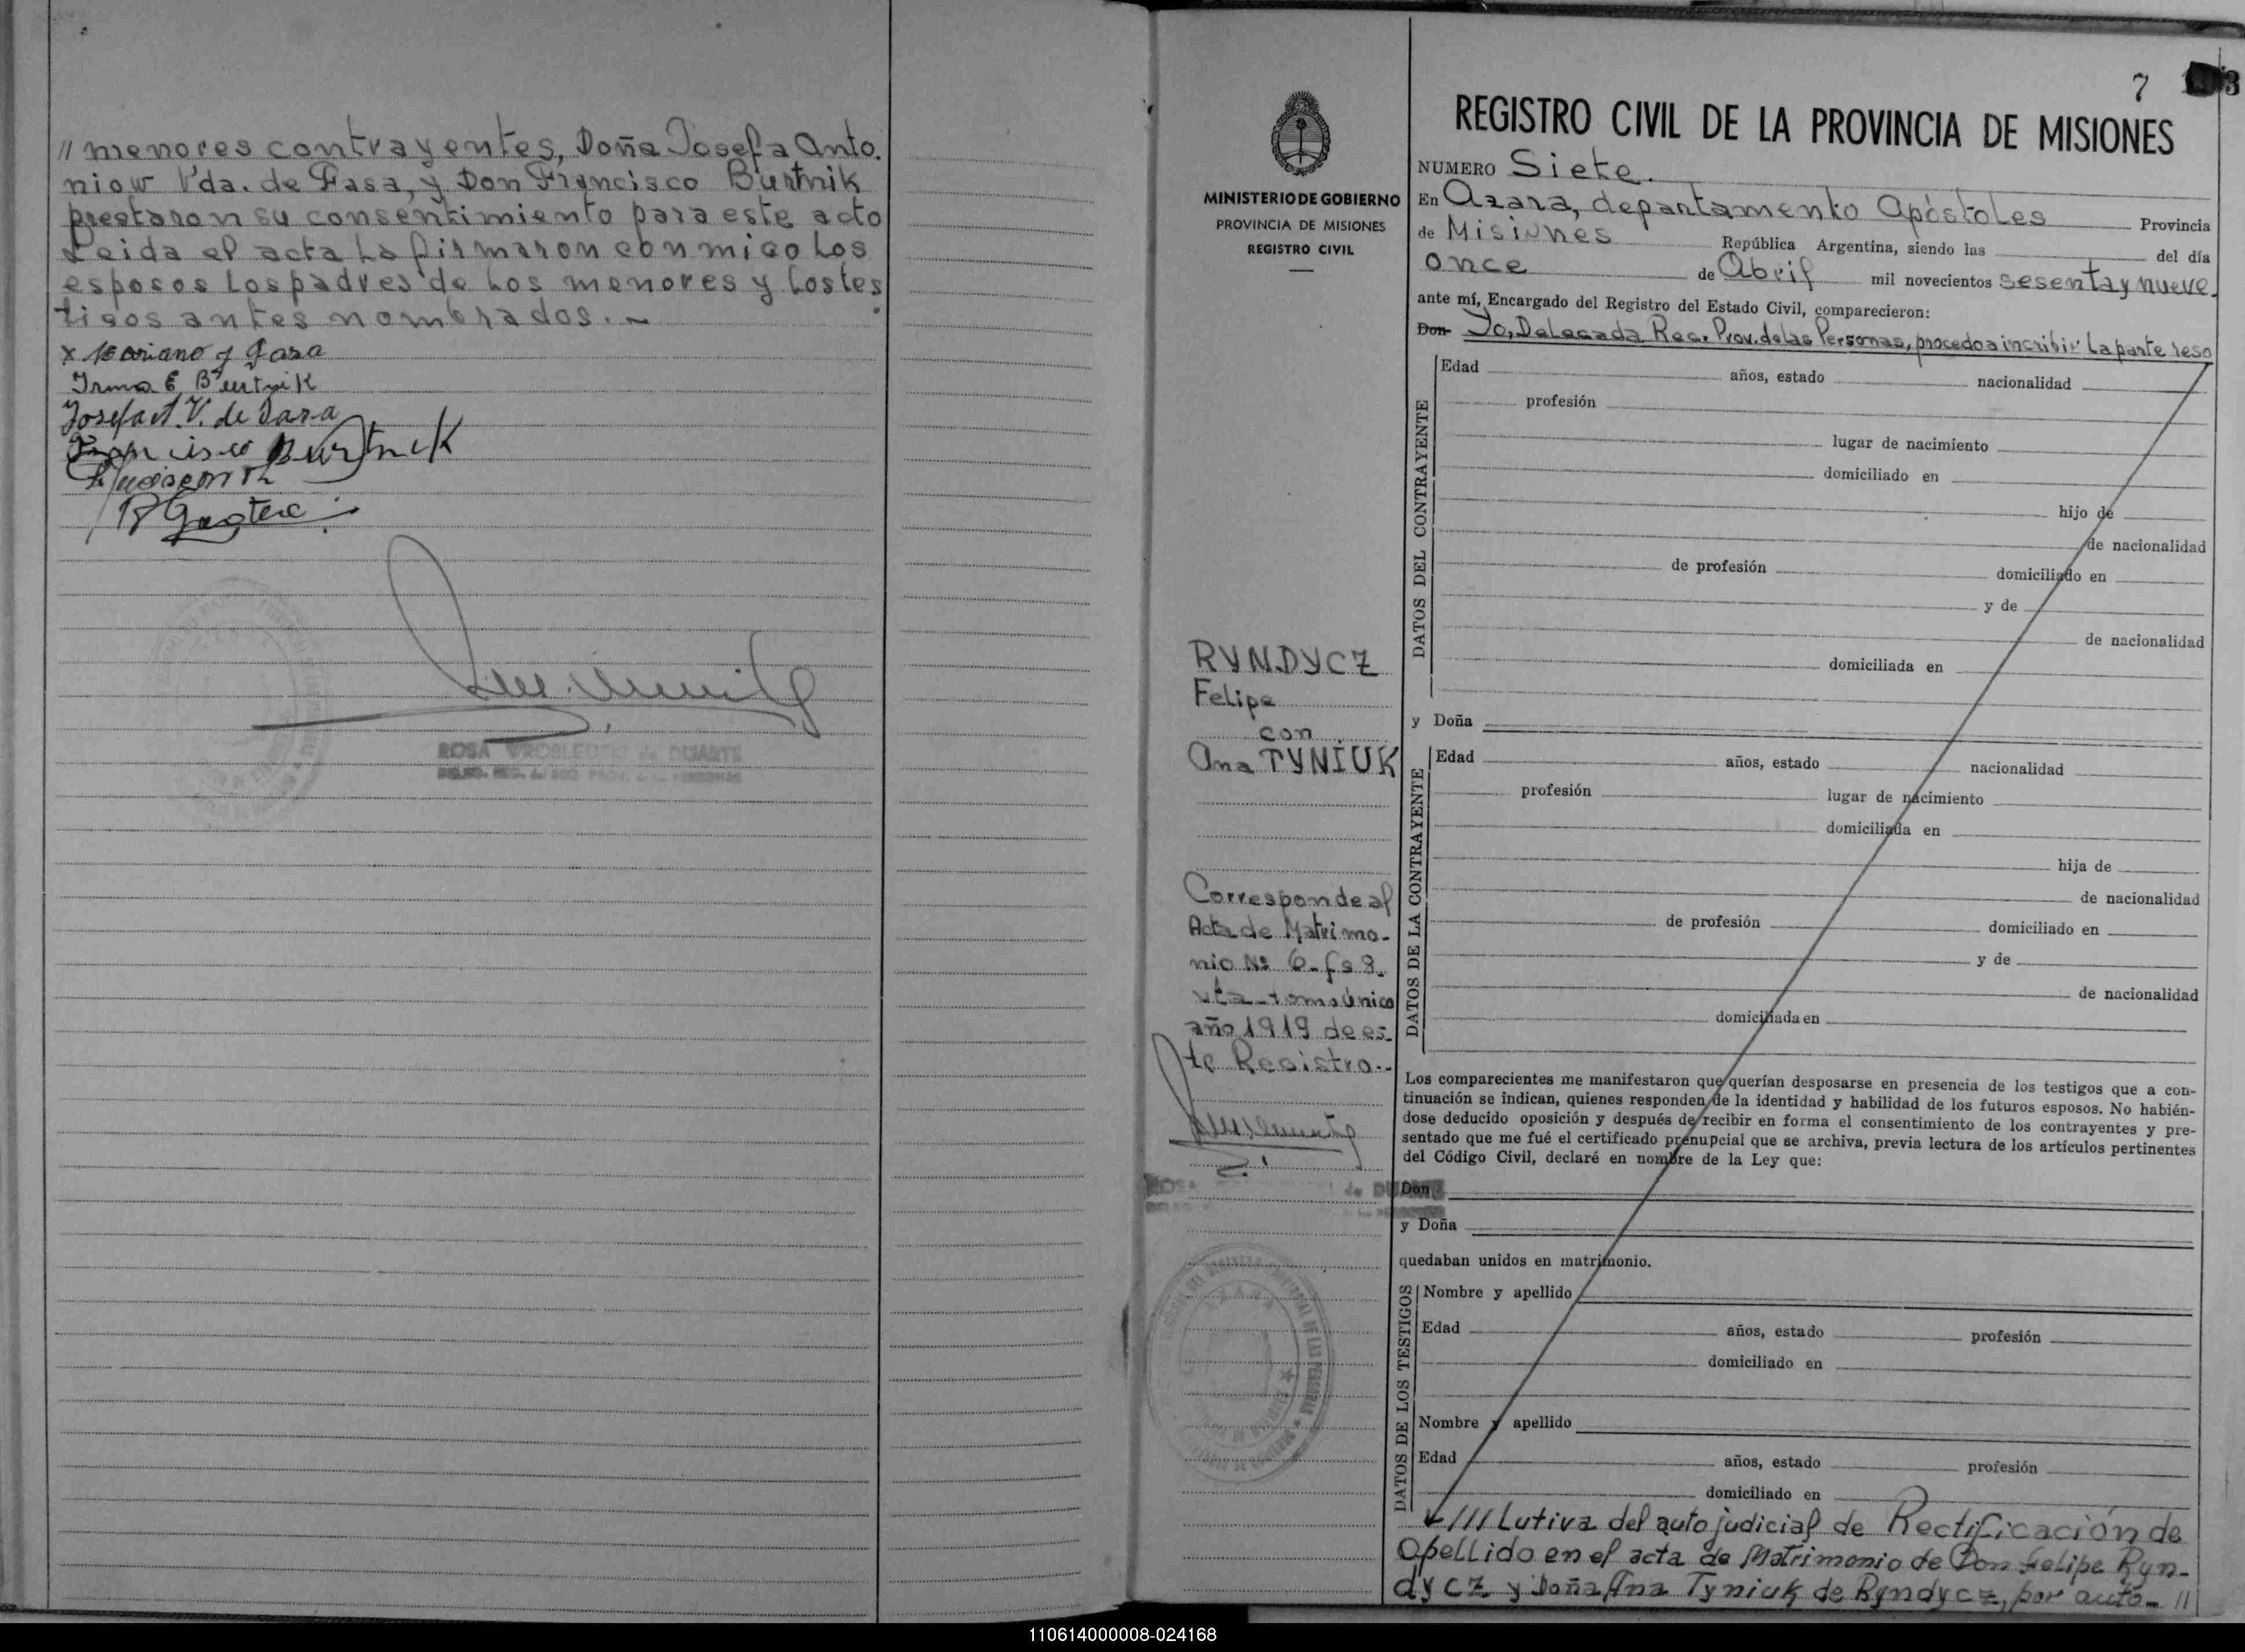 // menores contrayentes, Doña Josefa Anto.
niow Vda. de Fasa, y Don Francisco Burtnik
prestaron su consentimiento para este acto
Leida el acta la firmaron conmigo los
esposos los padres de los menores y los tes
tigos antes nombrados.-
Irma E Burtnik
Francisco Burtnik
ROSA WROBLEUSKI de DUARTE
7
REGISTRO CIVIL DE LA PROVINCIA DE MISIONES
NUMERO Siete.
MINISTERIO DE GOBIERNO
PROVINCIA DE MISIONES
REGISTRO CIVIL
En Azara, departamento Apóstoles Provincia
de Misiones República Argentina, siendo las del día
once de Abril mil novecientos sesenta y nueve.
ante mí, Encargado del Registro del Estado Civil, comparecieron:
Don Yo, Delegada Reg. Prov. de las Personas, procedo a incribir la parte reso
DATOS DEL CONTRAYENTE
Edad años, estado nacionalidad
profesión
lugar de nacimiento
domiciliado en
hijo de
de nacionalidad
de profesión domiciliado en
y de
de nacionalidad
domiciliada en
y Doña
RYNDYCZ
Felipe
con
Ana TYNIUK
DATOS DE LA CONTRAYENTE
Edad años, estado nacionalidad
profesión lugar de nacimiento
domiciliada en
hija de
de nacionalidad
de profesión domiciliado en
y de
de nacionalidad
domiciliada en
Corresponde al
Acta de Matrimo-
nio Nº 6 - fs 8.
vta - tomo único
año 1919 de es-
te Registro.-
Los comparecientes me manifestaron que querían desposarse en presencia de los testigos que a con-
tinuación se indican, quienes responden de la identidad y habilidad de los futuros esposos. No habién-
dose deducido oposición y después de recibir en forma el consentimiento de los contrayentes y pre-
sentado que me fué el certificado prenupcial que se archiva, previa lectura de los artículos pertinentes
del Código Civil, declaré en nombre de la Ley que:
Don
y Doña
quedaban unidos en matrimonio.
DATOS DE LOS TESTIGOS
Nombre y apellido
Edad años, estado profesión
domiciliado en
Nombre y apellido
Edad años, estado profesión
domiciliado en
/// Lutiva del auto judicial de Rectificación de
Apellido en el acta de Matrimonio de Don Felipe Ryn-
dycz y Doña Ana Tyniuk de Ryndycz, por auto- //
110614000008-024168